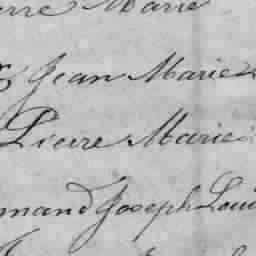 erre Marie
& Jean Marie
Pierre Marie
mand Joseph Loui